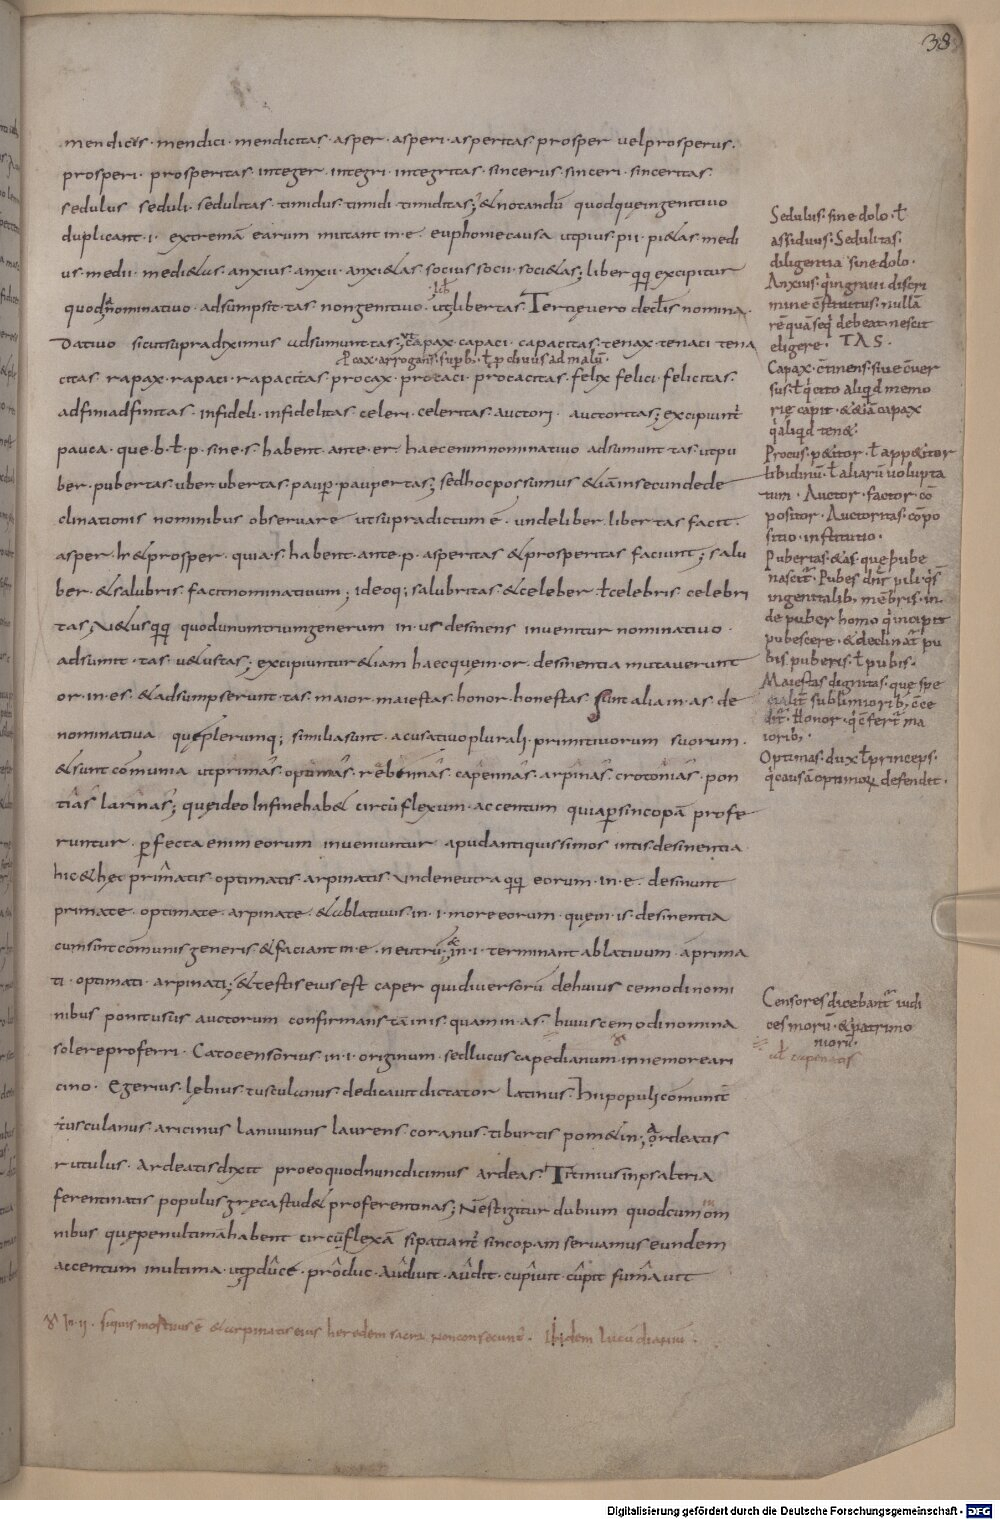 38
mendicus · mendici · mendicitas · asper · asperi · asperitas · prosper uelprosperus ·
prosperi · prosperitas · integer · integri · integritas · sincerus · sinceri · sinceritas
sedulus seduli · sedulitas · timidus · timidi · timiditas; & notandū quodquęingenitiuo
duplicant · i · extremā earum mutant in · e · euphonie causa ut pius · pii · pi&as medi
us · medii · medi&us · anxius · anxii · anxi&as socius · socii · soci&as; liber qq; excipitur
quod nominativo · adsumpsit · tas · non genitiuo · ut libertas · Tertię uero declis nomina ·
Datiuo sicut supradiximus adsumunt tas · ut capax · capaci · capacitas · tenax · tenaci tena
Pcax · arrogans · supb, · ł pcliuus ad malū ·
citas rapax · rapaci · rapacitas procax · procaci · procacitas · felix felici · felicitas ·
adfini adfinitas · infideli · infidelitas celeri · celeritas · auctori · auctoritas; excipiunt
pauca · que · b · ł · p · sine · s · habent · ante · er haec enim nominatiuo adsumunt · tas · ut pu
ber · pubertas · uber ubertas · paup · paupertas; sed hoc possumus &iā in secunde de
clinationis nominibus obseruare ut supra dictum ē · unde liber · libertas facit ·
asper & prosper · quia · s · habent · ante · p · asperitas & prosperitas faciunt; salu
ber · & salubris · facit nominatiuum; ideoq; salubritas & celeber ł celebris celebri
tas; u&us qq; quod unum trium generum in · us desinens inuenitur nominatiuo ·
adsumit · tas · u&ustas; excipiuntur &iam haec quę in · or · desinentia mutauerunt
or · in · es · & adsumpserunt · tas · maior · maiestas · honor · honestas Sunt alia in · as · de
nominatiua quę plerumq; similia sunt · acusatiuo plurali · primitiuorum suorum ·
& sunt comunia ut primâs · optimâs · capennâs · arpinâs · crotoniâs · pon
tiâs larinâs; quę ideo in fine hab& circūflexum · accentum quia p sincopā profe
runtur · pfecta enim eorum inueniuntur apud antiquissimos in tis desinentia
hic & hęc primatis optimatis · arpinatis · unde neutra qq; eorum · in · e · desinunt
primate · optimate · arpinate · & ablatiuus · in · i · more eorum · quę in · is · desinentia
cum sint comunis generis & faciant in · e · neutrū · in · i · terminant ablatiuum · a prima
ti · optimati · arpinati; & testis eius est caper qui diuersorū de huius cemodi nomi
nibus ponit usus auctorum confirmans tā in is · quam in · as · huius cemodi nomina
solere proferri · Cato censorius · in · i · originum · sed lucus capedianum in nemore ari
cino · Egerius · lębius · tusculanus · dedicauit dictator latinus · Hii populi comunit
tusculanus · aricinus lanuuinus laurens · coranus · tiburtis pom&in; ardeatis
rutulus · Ardeatis dixit pro eo quod nunc dicimus ardeas · Titinius in psaltria
ferentinatis populus gręca stud& pro ferentinas; Nē igitur dubium quod cum om
nibus quę penultimā habent circūflexā si patiant sincopam seruamus eundem
accentum in ultima · ut pdûcé · prôduc · Audîuit · audît · cupîuit · cupît fumâuit
In · ii · siquis mortuus ē & arpinatis eius heredem sacra non con secunt · Ibidem lucū dianiū ·
Sedulus · sine dolo · ł
assiduus · Sedulitas ·
diligentia sine dolo ·
Anxius · q in graui discri
mine ē · nullā
rē quā seq debeat · nescit
eligere · TAS ·
Capax · ctinens · siue cuer
sus · ł q cito aliqd memo
rię capit · & &iā capax
q aliqd ten& ·
Procus · p&itor · ł app&itor
libidinū · ł aliarū uolupta
tum · Auctor · factor · cō
positor · Auctoritas · cōpo
sitio · institutio ·
Pubertas · &as · quę pube
nascit · Pubes dnr pili qs
in genitalib; mēbris · in
de puber homo q incipit
pubescere · & declinat pu
bis puberis · ł pubis ·
Maiestas dignitas · quę spe
cialit sublimiorib; cce
dit · Honor · q cfert ma
iorib;
Optimas · dux ł princeps ·
q causā optimoꝝ defendit ·
Censores dicebant iudi
ces morū · & patrimo
niorū ·
Digitalisierung gefördert durch die Deutsche Forschungsgemeinschaft - DFG